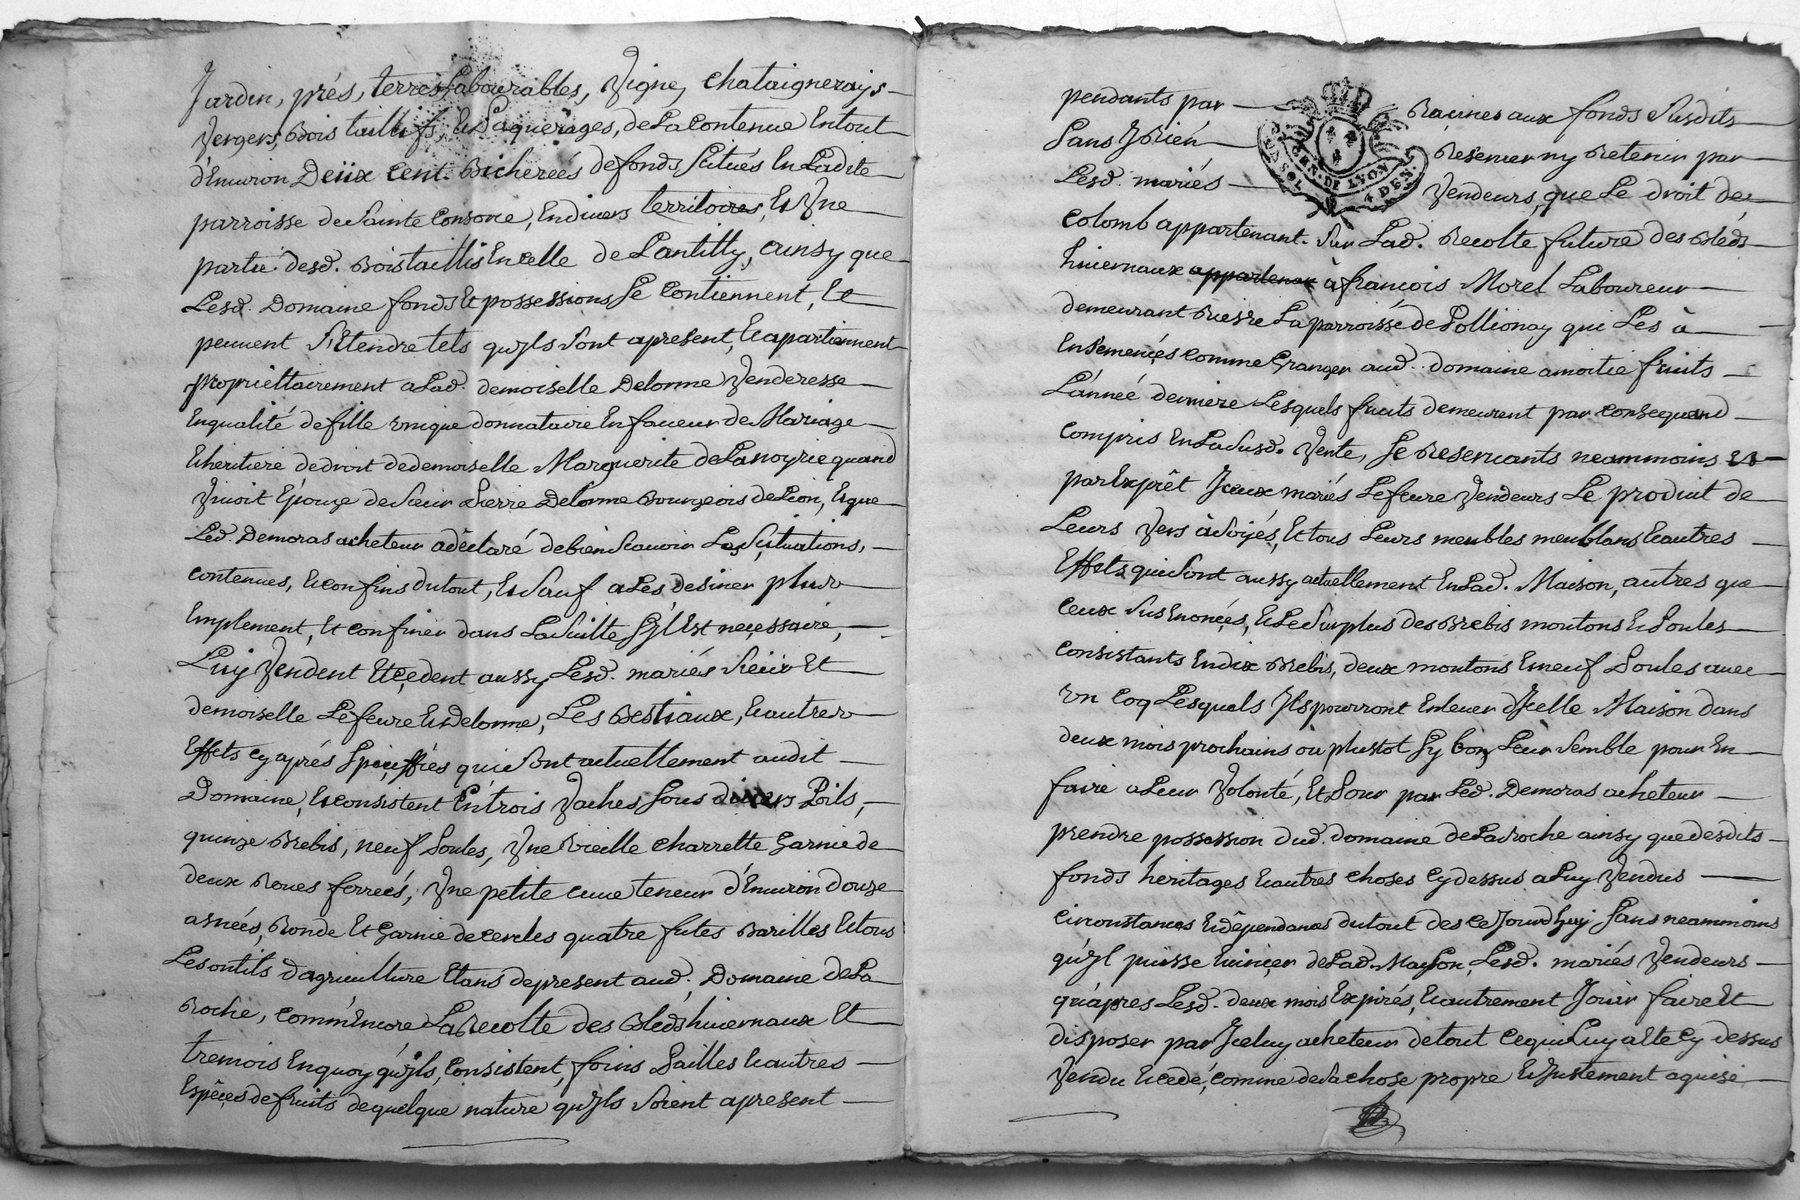 Jardin, prés, terres Labourables, Vigne, chataignerays
Vergers, Bois taillifs, & Paquerages, de La Contenue Entout
d'Enuiron Deüx Cent Bicherées de fonds, Scitués En Ladite
parroisse de Sainte Consorce, En diuers territoires, & Vne
partie desd. Bois taillis En celle de Lantilly, ainsy que
Lesd. Domaine fonds Et possessions Se Contiennent, Et
peuuent S'Etendre tels qu'jls sont apresent, & apartiennent
propriettairement a Lad. demoiselle Delorme Venderesse
En qualité de fille vnique donnataire En faueur de Mariage
& heritiere de droit de demoiselle Marguerite de Lanoyrie quand
Viuoit Epouze de Sieur Pierre Delorme Bourgeois de Lion, & que
Led. Demoras acheteur a déclaré de bien Scauoir Les Scituations,
contenues, & confins du tout, & Sauf a Les desiner plus
Emplement, Et confiner dans La Suitte S'jl Est neçessaire,
Luy Vendent Et Cedent aussy Lesd. mariés Sieur Et
demoiselle Lefeure & Delorme, Les Bestiaux, & autres
Effets cy aprés Speciffiés qui Sont actuellement audit
Domaine, & consistent En trois Vaches Sous diuers Poils,
quinze Brebis, neuf Poules, Vne Vieille charrette Garnie de
deux Roues ferreés, Vne petite cuue teneur d'Enuiron douze
asnées, Ronde Et Garnie de cercles quatre futes Barilles & tous
Les outils d'agriculture Etans de present aud. Domaine de La
Roche, comm'Encore La Recolte des Bleds hiuernaux Et
tremois En quoy qu'jls Consistent, foins Pailles & autres
Espêçes de fruits de quelque nature qu'jls Soient apresent
pendants par Racines aux fonds Susdits
Sans Y Rien Reseruer ny Retenir par
Lesd. mariés Vendeurs, que Le droit de
GEN. DE LYON
SOL
4 DEN.
colomb appartenant Sur Lad. Recolte future des Bleds
hiuernaux appartenant à francois Morel Laboureur
demeurant Riesre La parroisse de Pollionay qui Les à
Ensemençés comme Granger aud. domaine a moitié fruits
L'année derniere Lesquels fruits demeurent par consequand
compris En La Susd. Vente, Se Reseruants neammoins
par Exprêt Jceux mariés Lefeure Vendeurs Le produit de
Leurs Vers à Soyés, Et tous Leurs meubles meublans & autres
Effets qui Sont aussy actuellement En Lad. Maison, autres que
ceux Sus Enonçés, & Le Surplus des Brebis moutons & Poules
consistants En dix Brebis, deux moutons & neuf Poules auec
vn coq Lesquels Jls pourront Enleuer d'Jcelle Maison dans
deux mois prochains ou plustot Sy bon Leur Semble pour En
faire a Leur Volonté, Et Pour par Led. Demoras acheteur
prendre possession dud. domaine de La Roche ainsy que desdits
fonds héritages & autres choses cy dessus a Luy Vendus
circonstances & dépendances du tout des ce Jourd'huy Sans neammoins
qu'jl puisse Euinçer de Lad. Mayson, Lesd. mariés Vendeurs
qu'àpres Lesd. deux mois Expirés, & autrement Jouir faire Et
disposer par Jceluy acheteur de tout Ce qui Luy a Ete cy dessus
Vendu & cedé, comme de Sa chose propre & Justement aquise